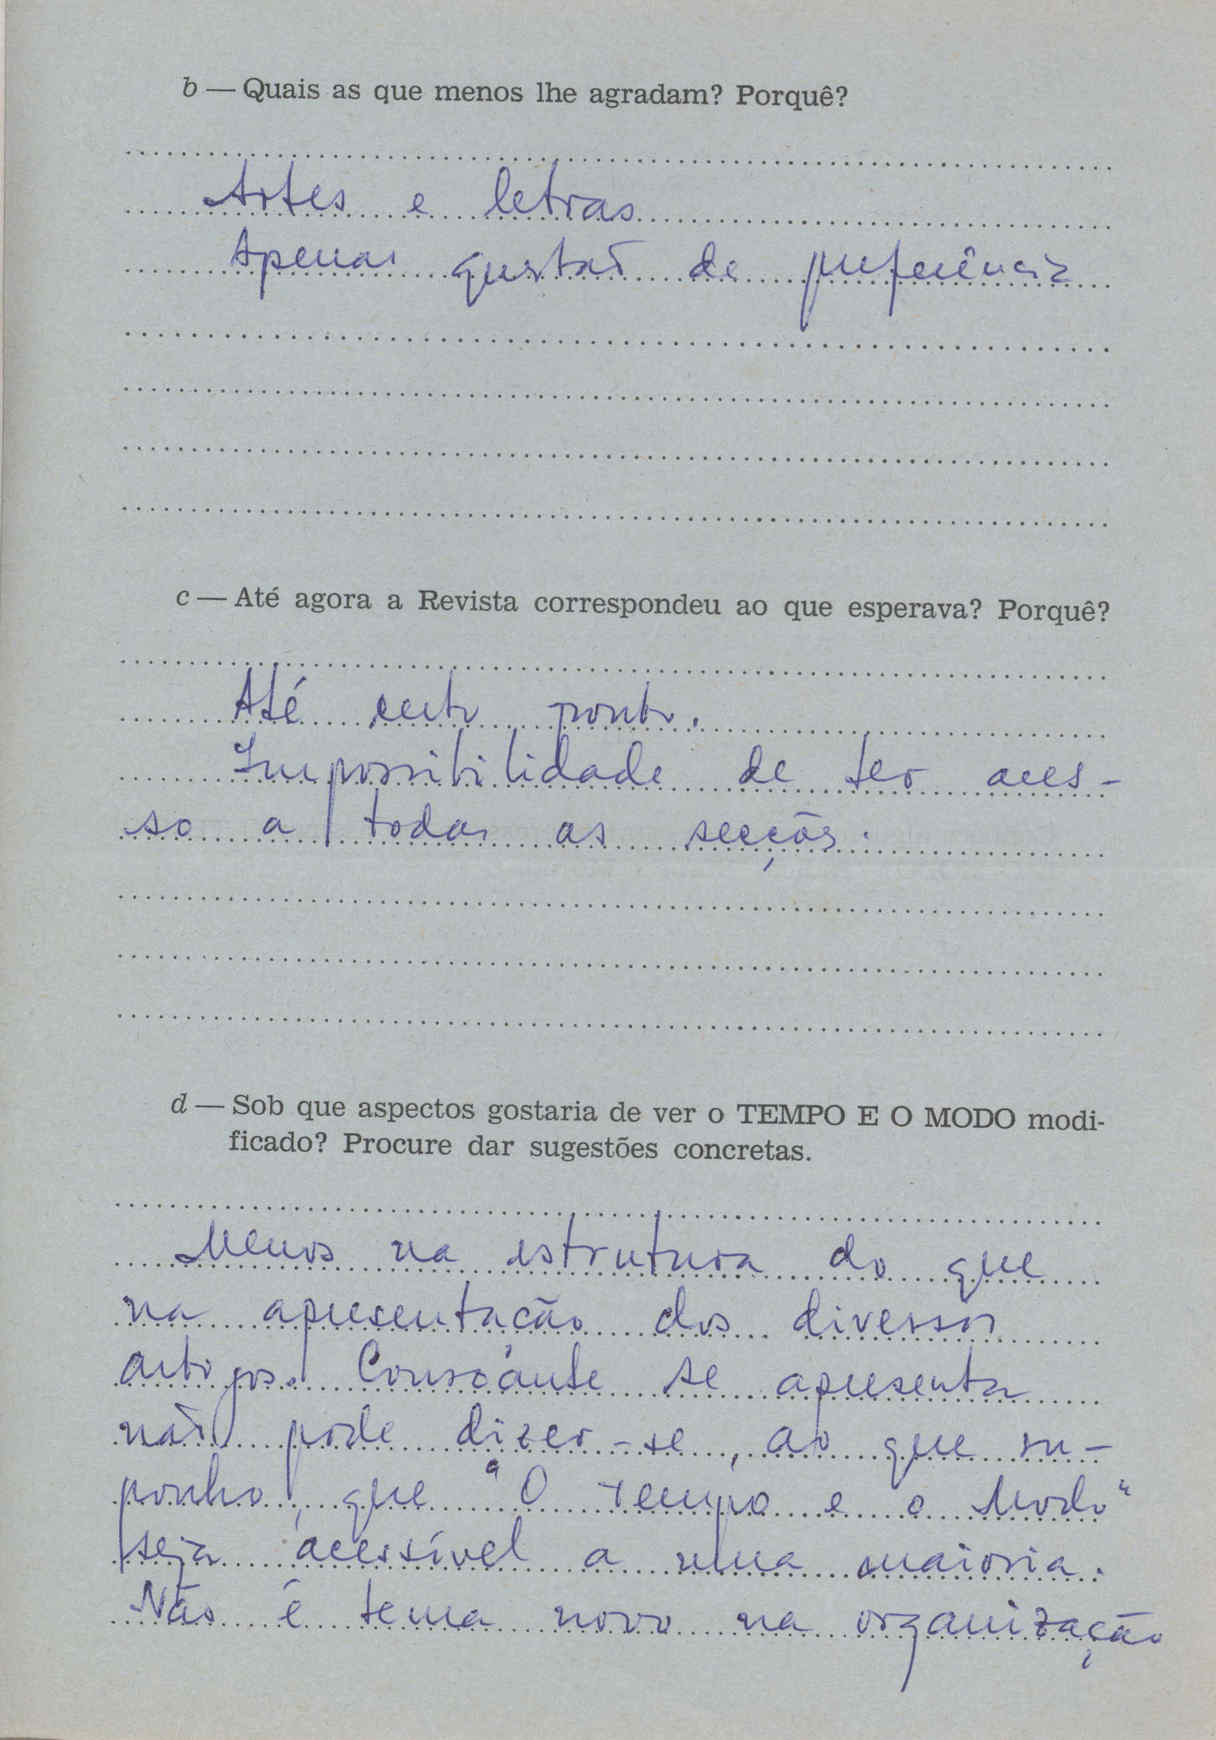 b — Quais as que menos lhe agradam? Porquê?
Artes e letras
Apenas questão de preferência
c — Até agora a Revista correspondeu ao que esperava? Porquê?
Até certo ponto.
Impossibilidade de ter aces-
so a todas as secções.
d — Sob que aspectos gostaria de ver o TEMPO E O MODO modi-
ficado? Procure dar sugestões concretas.
Menos na estrutura do que
na apresentação dos diversos
artigos. Consoante se apresenta
não pode dizer-se, ao que su-
ponho, que "O Tempo e o Modo"
seja acessível a uma maioria.
Não é tema novo na organização